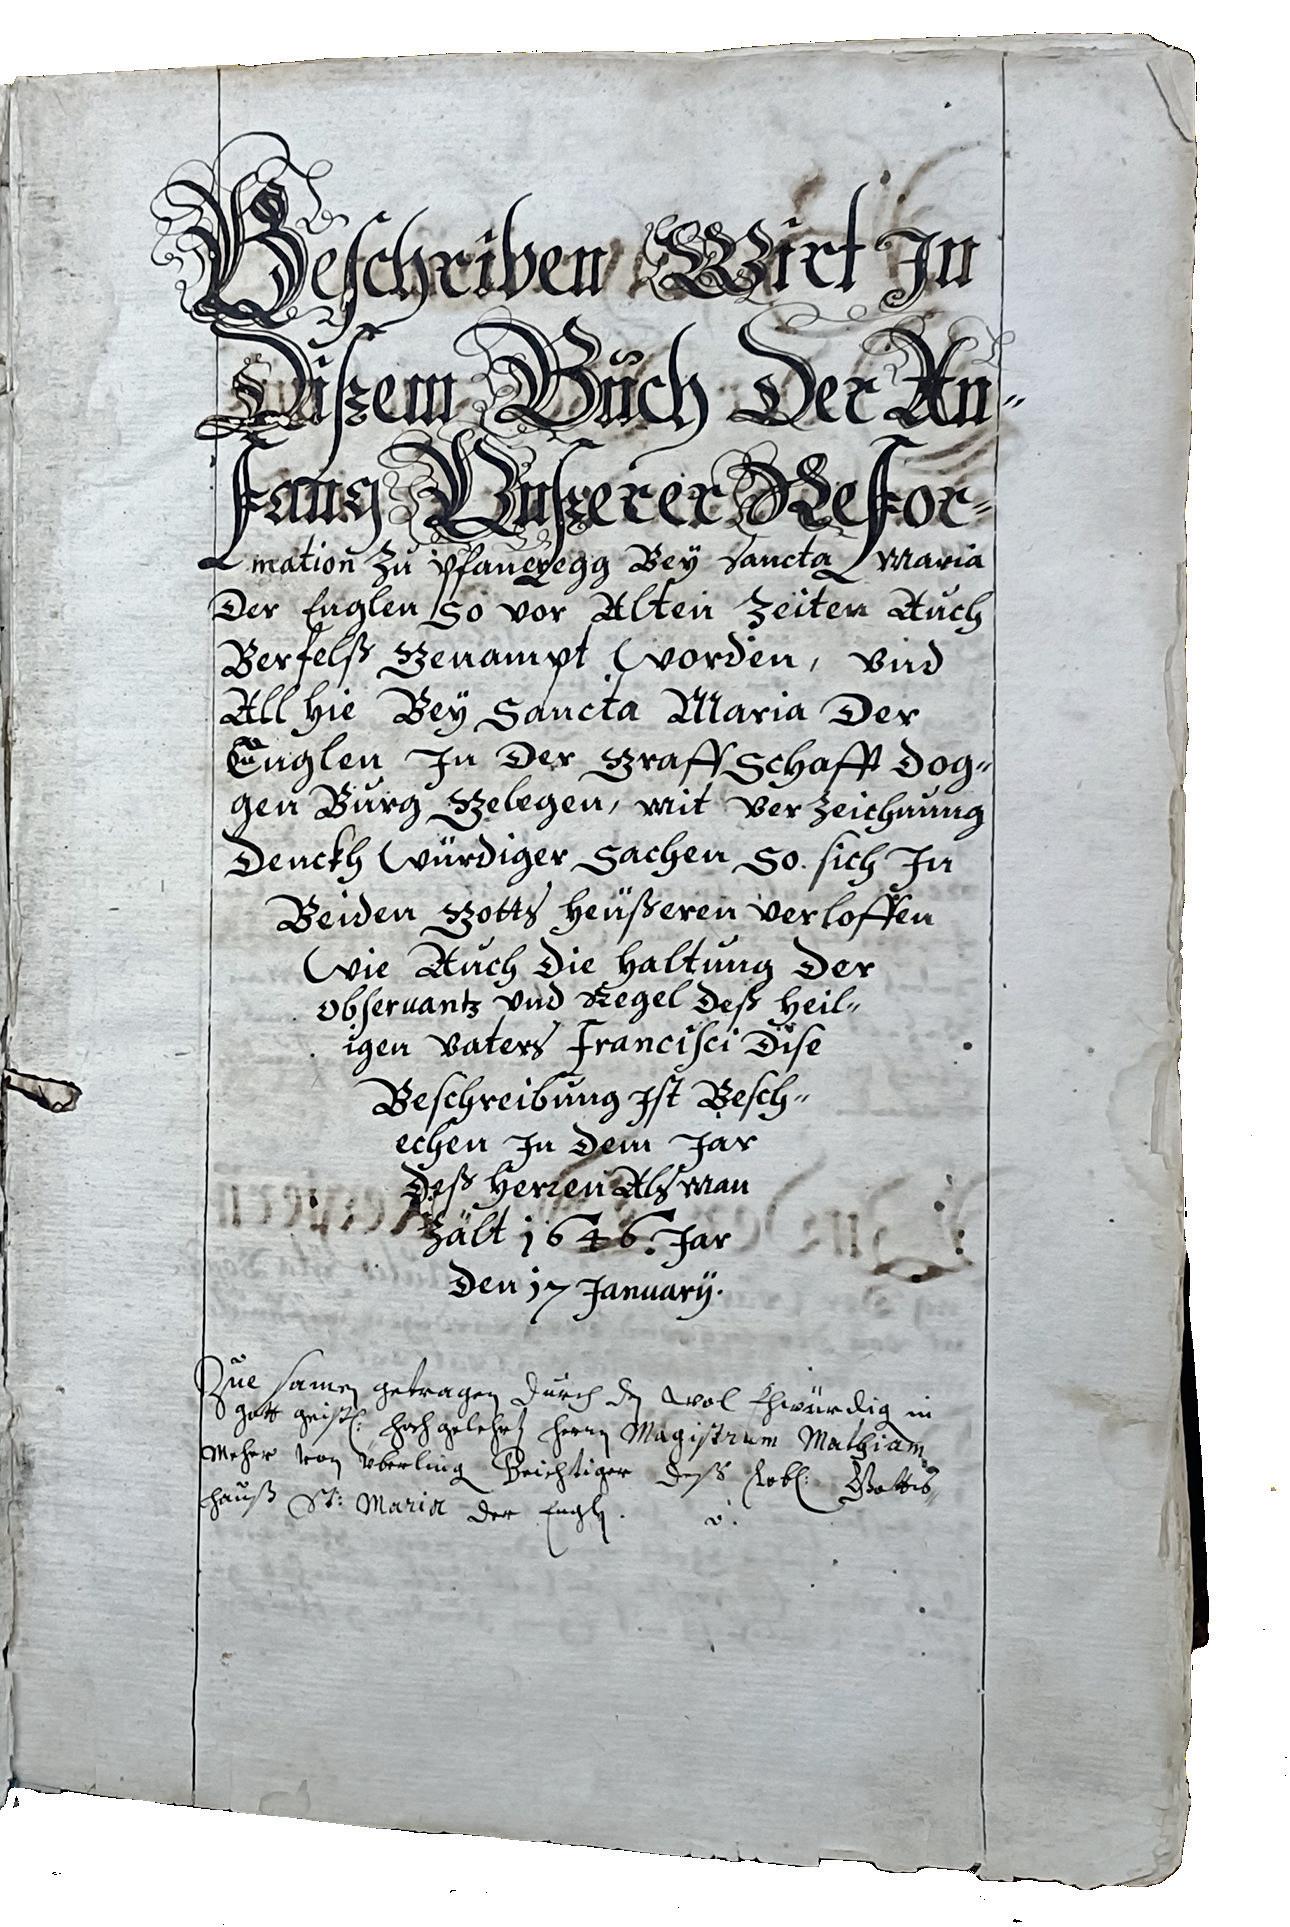 Beschriben Wirt In
Dißem Buͦch Der An-
fang Vnßerer Refor-
mation Zu Pfaneregg Bey Sancta Maria
Der Englen So vor Alten Zeiten Auch
Berfelß Genampt Worden, vnd
All hie Bey Sancta Maria Der
Englen In Der Graff Schafft Dog-
gen Burg Gelegen, mit Ver Zeichnung
Denckh Würdiger Sachen So sich In
Beiden Gotts Heüßeren Verloffen
Wie Auch Die Haltung Der
Obseruantz vnd Regel Deß Heil-
igen Vaters Francisci Dise
Beschreibung Ist Besch-
echen In Dem Jar
Deß Herren Alß Man
Zält 1646. Jar
Den 17 Januarÿ.
Zue samen getragen durch den Wol Ehwürdig in
gott geistl: hochgelehrt herrn Magistrum Mathiam
Meher von Überling Beichtiger deß Lobl: Gotts-
hauß St: Maria der Engl.